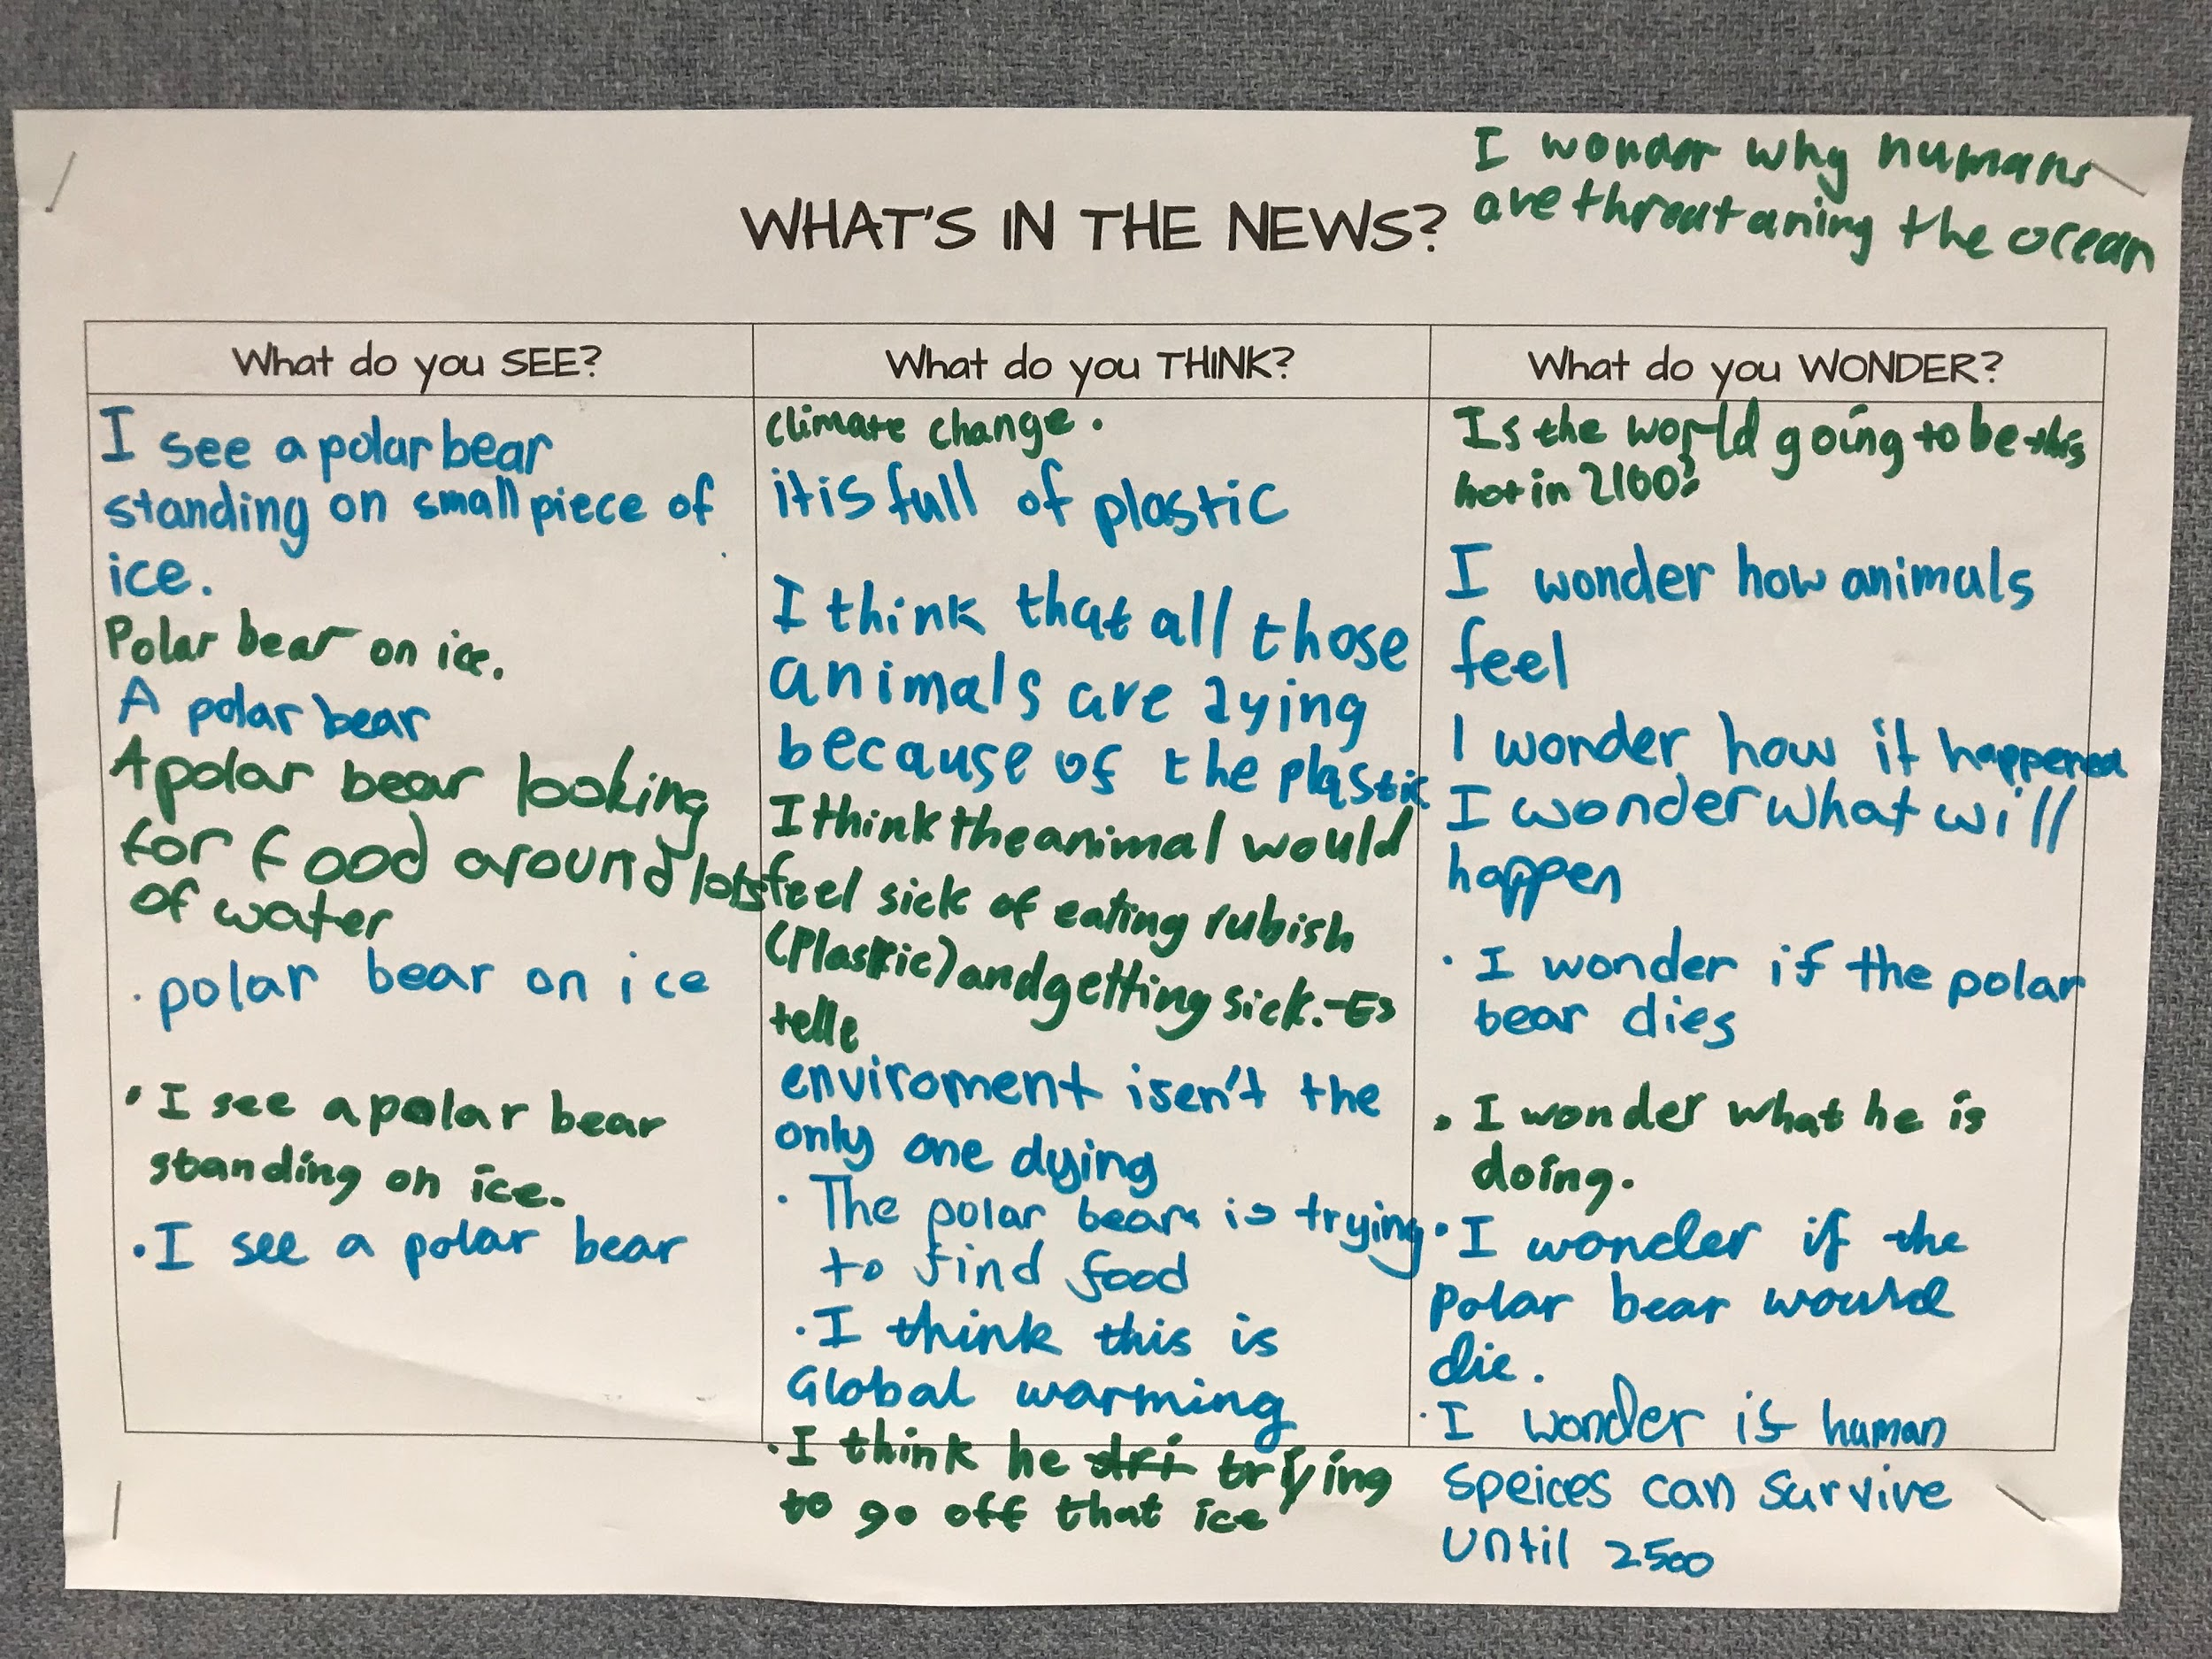 I wonder why humans
are threataning the ocean
WHAT'S IN THE NEWS?
What do you SEE?
I see a polar bear
standing on small piece of
ice.
Polar bear on ice.
A polar bear
A polar bear looking
for food around lots
of water
· polar bear on ice
· I see a polar bear
standing on ice.
· I see a polar bear
What do you THINK?
climate change.
it is full of plastic
I think that all those
animals are dying
because of the plastic
I think the animal would
feel sick of eating rubish
(Plastic) and getting sick.-Es
telle
enviroment isen't the
only one dying
· The polar bear is trying
to find food
· I think this is
Global warming
· I think he dri trying
to go off that ice
What do you WONDER?
Is the world going to be this
hot in 2100?
I wonder how animals
feel
I wonder how it happened
I wonder what will
happen
· I wonder if the polar
bear dies
· I wonder what he is
doing.
· I wonder if the
polar bear would
die.
· I wonder is human
speices can survive
until 2500